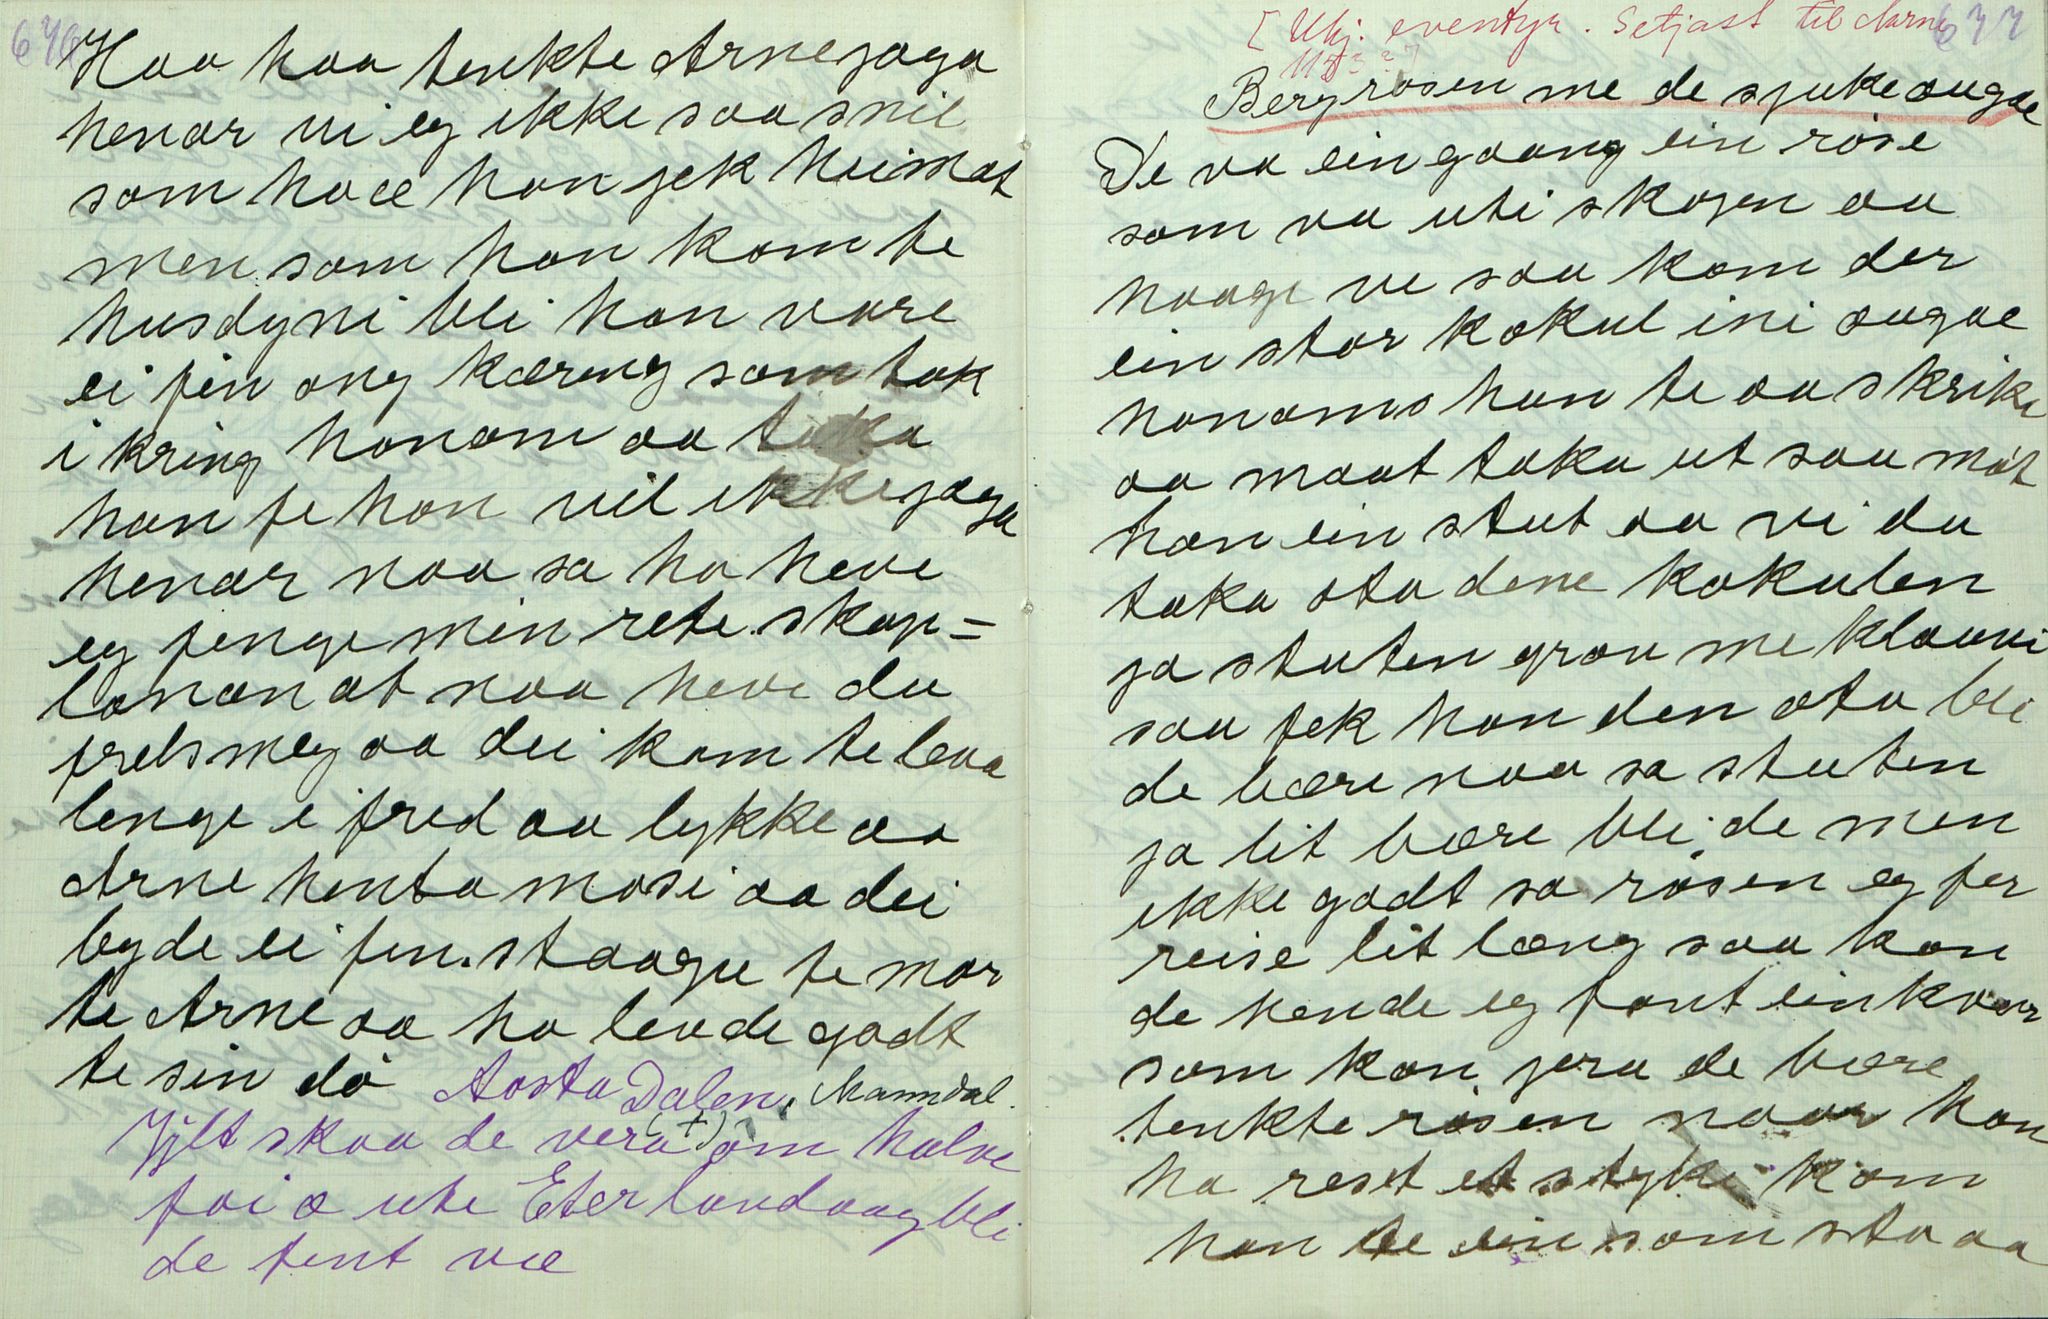 676
Haa haa tenkte Arne jaga
henar vi eg ikke saa snil
som ho æ han jek heimat
men som han kom te
husdyni bli han vare
ei fin ong kæreng som tok
i kring honom aa
han fe han vil ikke jaga
henar naa sa ho heve
eg fenge min rete skap=
lonan at naa heve du
frels meg aa dei kom te leva
lenge i fred aa lykke aa
Arne henta mosi aa dei
bygde ei fin staagu te mor
te Arne aa ho levde godt
te sin dö Aosta Dalen, Manndal.
Jylt skaa de vera (+) om halve
foi o ute Eter landaag bli
de fent væ
677
[ Ukj. eventyr. Setjast til
Bergrosen me de sjuke augae
De va ein gaang ein röse
som va uti skogen aa
haage ve saa kom der
ein stor kokul ini augae
honoms han te aa skrike
aa maat taka ut saa möt
han ein stut aa vi du
taka ota dene kokulen
ja stuten grov me klauvi
saa fek han den ota bli
de bære naa sa stuten
ja lit bære bli de men
ikke godt sa rösen eg fer
reise lit læng saa kan
de hende eg fant einkvar
som kan jera de bære
tenkte rösen naar han
ha reist et styke kom
han te ein som sto aa